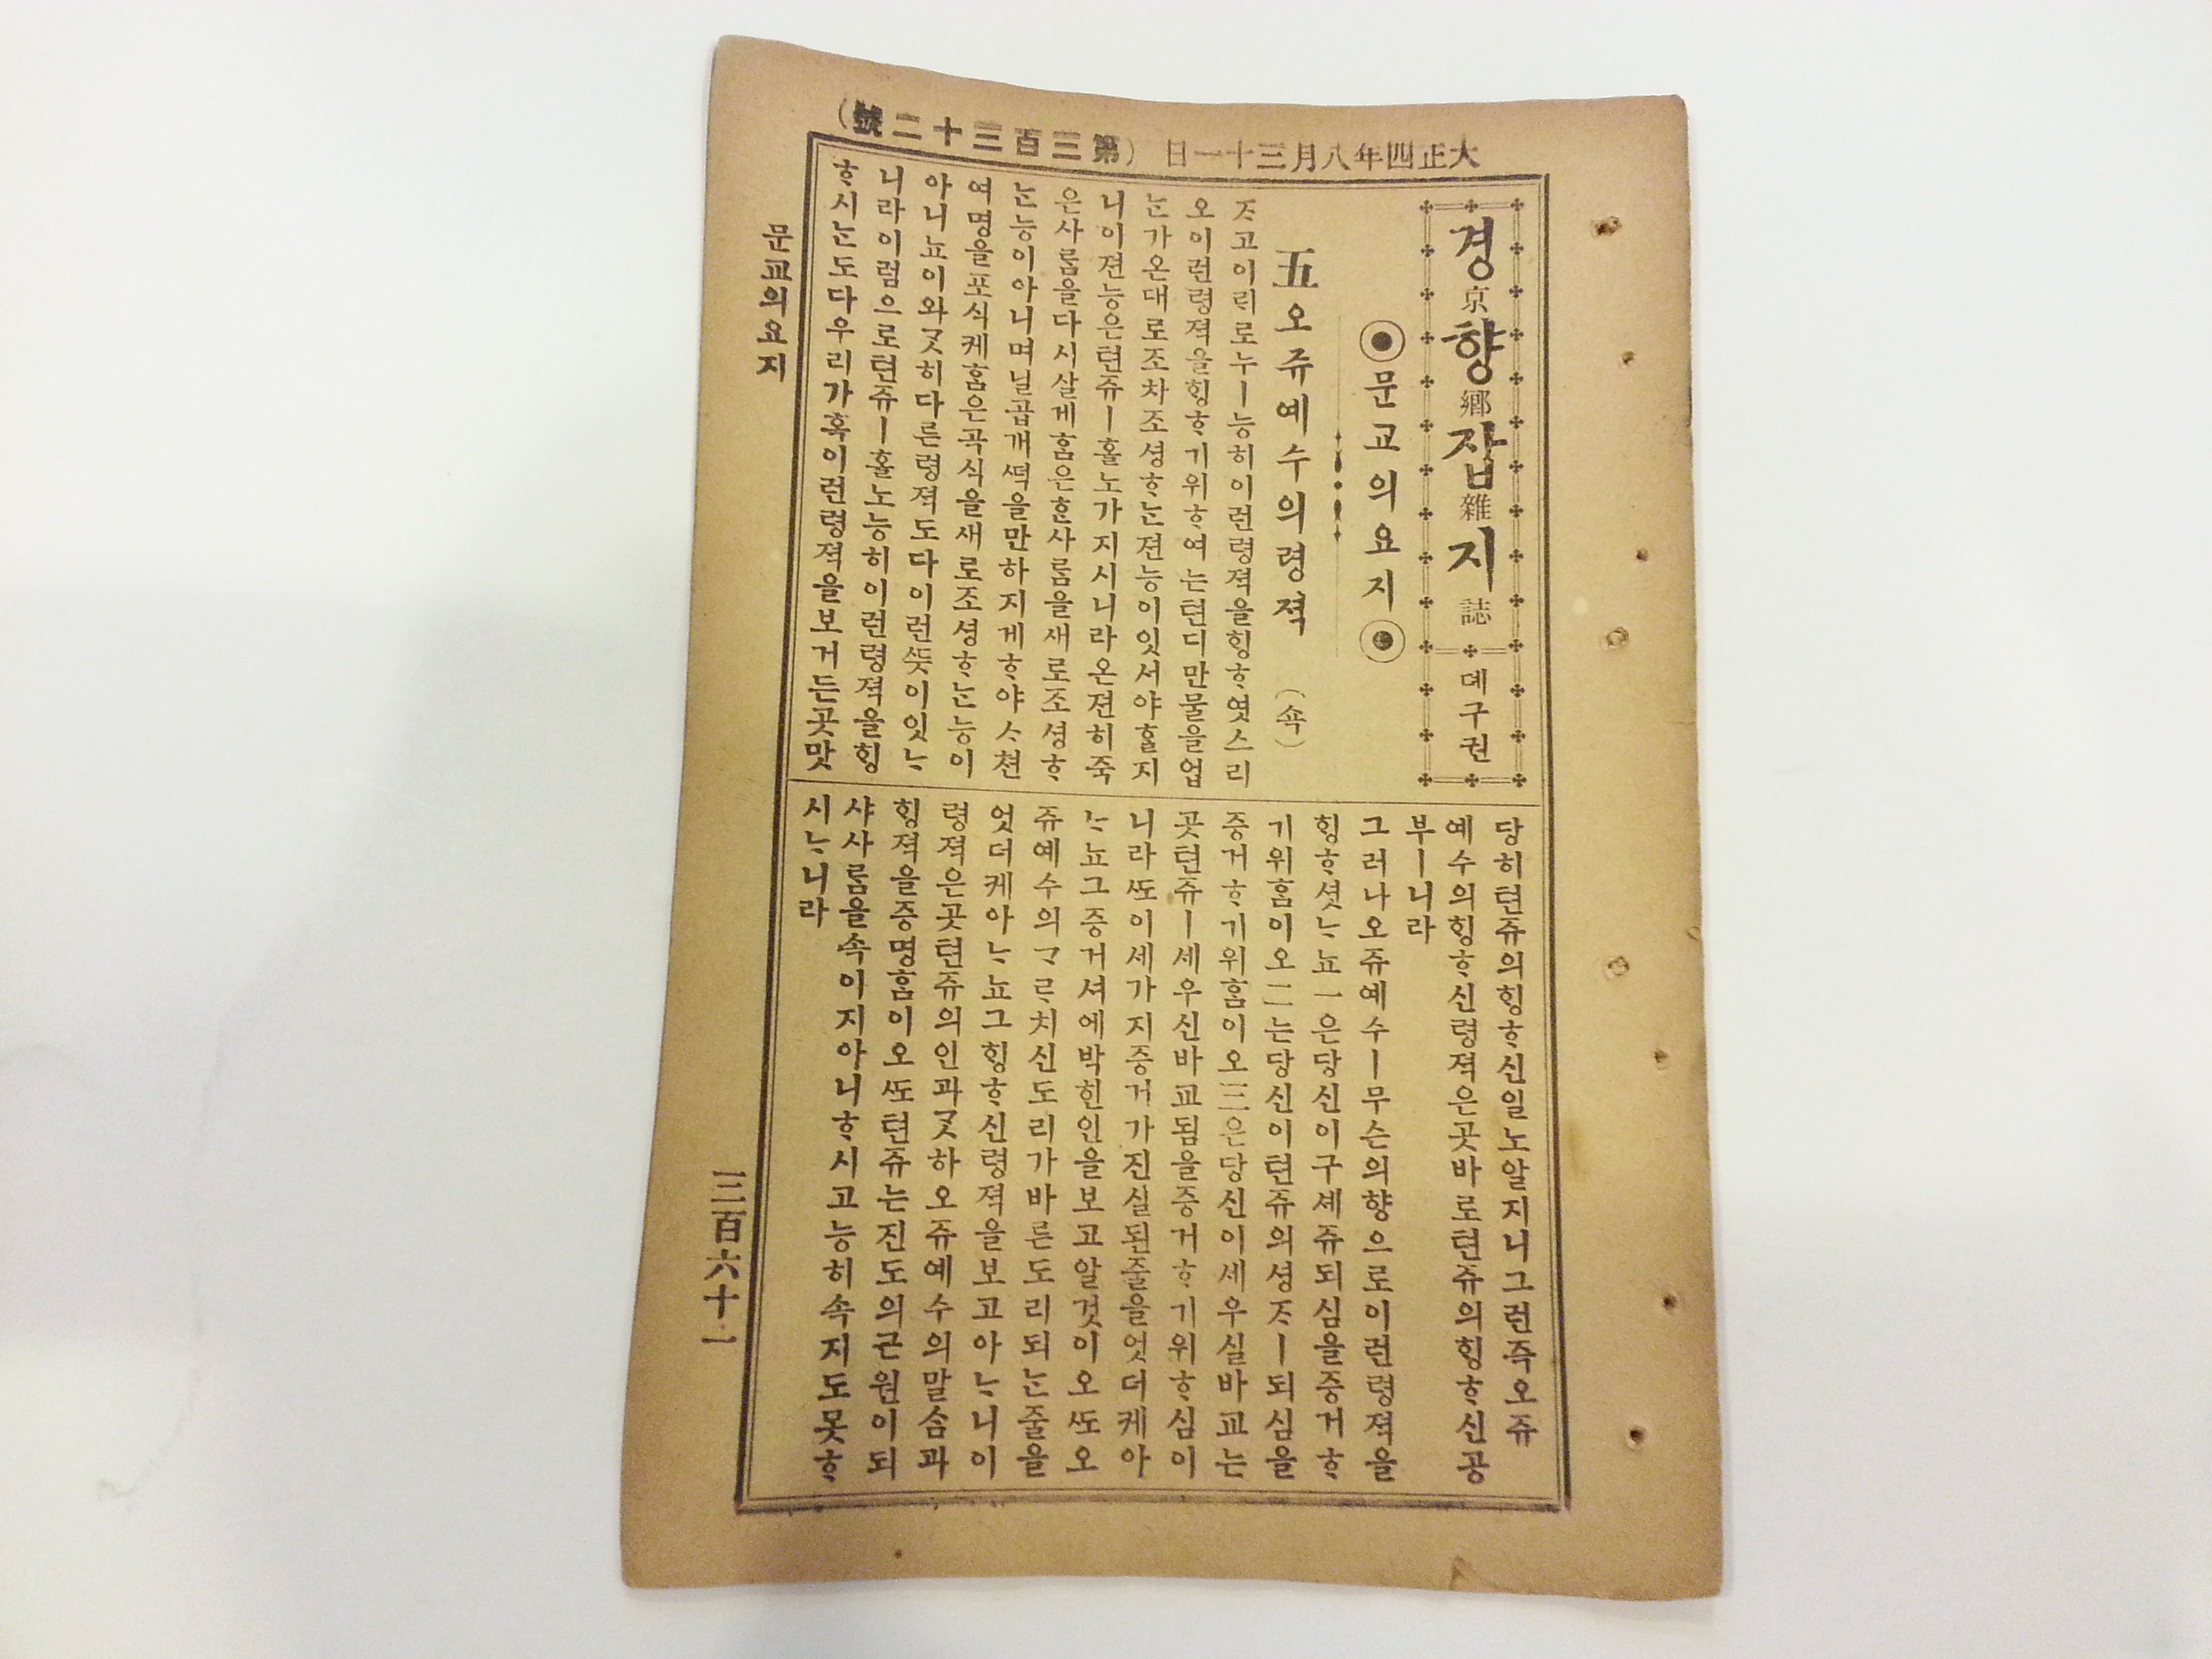 大正四年八月三十一日 (第三百三十二號)
경京향鄕잡雜지誌 뎨구권
문교의요지
五 오쥬예수의령젹 (쇽)
ᄌᆞ고이ᄅᆡ로누ㅣ능히이런령젹을ᄒᆡᆼᄒᆞ엿스리
오이런령젹을ᄒᆡᆼᄒᆞ기위ᄒᆞ여는텬디만물을업
ᄂᆞᆫ가온대로조차조셩ᄒᆞᄂᆞᆫ젼능이잇서야ᄒᆞᆯ지
니이젼능은텬쥬ㅣ홀노가지시니라온젼히죽
은사ᄅᆞᆷ을다시살게ᄒᆞᆷ은ᄒᆞᆫ사ᄅᆞᆷ을새로조셩ᄒᆞ
ᄂᆞᆫ능이아니며닐곱개ᄯᅥᆨ을만하지게ᄒᆞ야ᄉᆞ쳔
여명을포식케ᄒᆞᆷ은곡식을새로조셩ᄒᆞᄂᆞᆫ능이
아니뇨이와ᄀᆞᆺ히다른령젹도다이런ᄯᅳᆺ이잇ᄂᆞ
니라이럼으로텬쥬ㅣ홀노능히이런령젹을ᄒᆡᆼ
ᄒᆞ시ᄂᆞᆫ도다우리가혹이런령젹을보거든곳맛
당히텬쥬의ᄒᆡᆼᄒᆞ신일노알지니그런즉오쥬
예수의ᄒᆡᆼᄒᆞ신령젹은곳바로텬쥬의ᄒᆡᆼᄒᆞ신공
부ㅣ니라
그러나오쥬예수ㅣ무슨의향으로이런령젹을
ᄒᆡᆼᄒᆞ셧ᄂᆞ뇨一은당신이구셰쥬되심을증거ᄒᆞ
기위ᄒᆞᆷ이오二는당신이텬쥬의셩ᄌᆞㅣ되심을
증거ᄒᆞ기위ᄒᆞᆷ이오三은당신이세우실바교는
곳텬쥬ㅣ세우신바교됨을증거ᄒᆞ기위ᄒᆞ심이
니라ᄯᅩ이세가지증거가진실된줄을엇더케아
ᄂᆞ뇨그증거셔에박힌인을보고알것이오ᄯᅩ오
쥬예수의ᄀᆞᄅᆞ치신도리가바른도리되ᄂᆞᆫ줄을
엇더케아ᄂᆞ뇨그ᄒᆡᆼᄒᆞ신령젹을보고아ᄂᆞ니이
령젹은곳텬쥬의인과ᄀᆞᆺ하오쥬예수의말ᄉᆞᆷ과
ᄒᆡᆼ젹을증명ᄒᆞᆷ이오ᄯᅩ텬쥬는진도의근원이되
샤사ᄅᆞᆷ을속이지아니ᄒᆞ시고능히속지도못ᄒᆞ
시ᄂᆞ니라
문교의요지
三百六十一